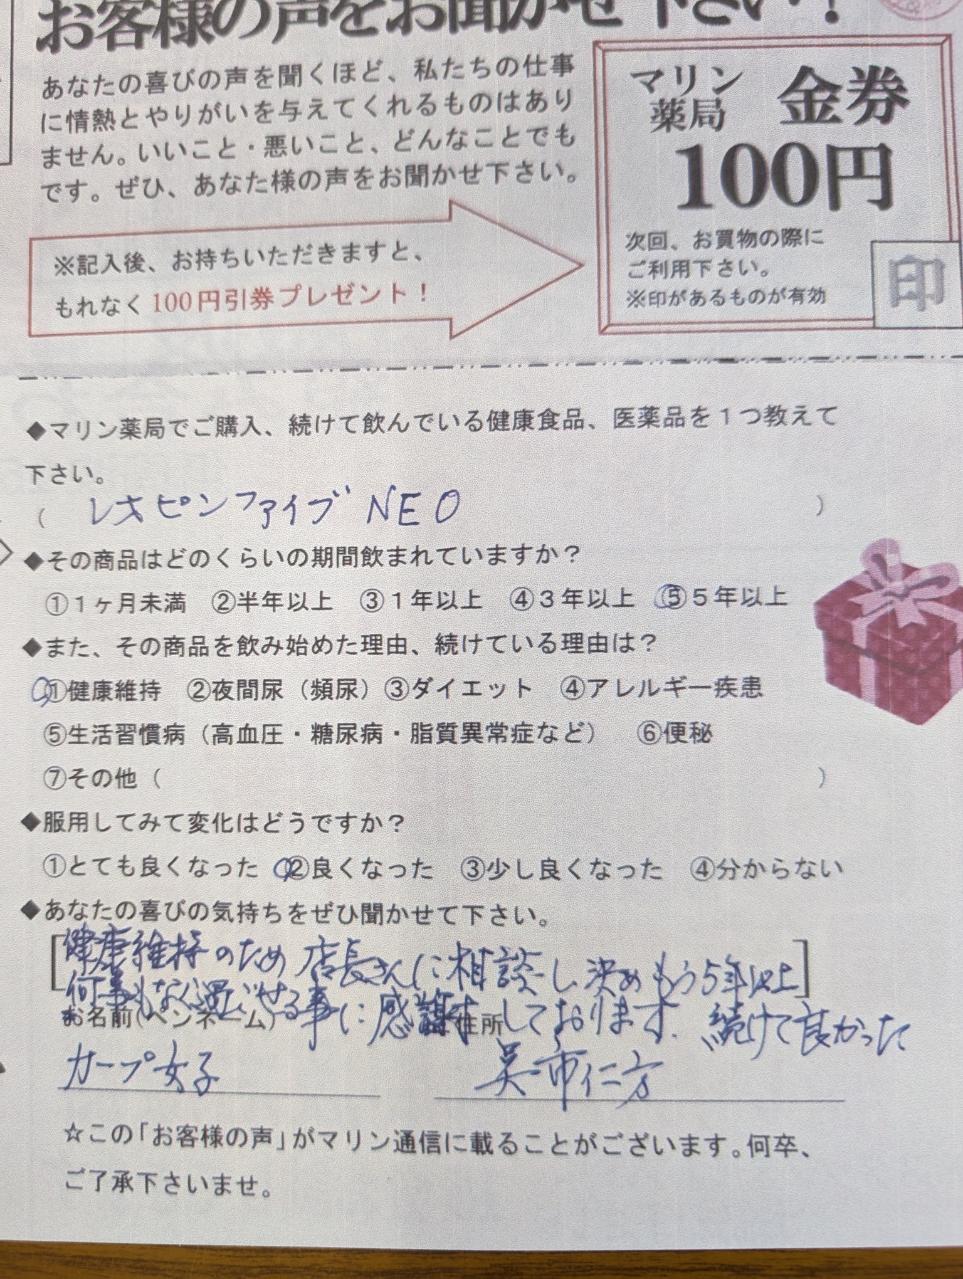 お客様の声をお聞かせ下さい！
あなたの喜びの声を聞くほど、私たちの仕事
に情熱とやりがいを与えてくれるものはあり
ません。いいこと・悪いこと、どんなことでも
です。ぜひ、あなた様の声をお聞かせ下さい。
※記入後、お持ちいただきますと、
もれなく100円引券プレゼント！
マリン薬局 金券
100円
次回、お買物の際に
ご利用下さい。
※印があるものが有効
印
◆マリン薬局でご購入、続けて飲んでいる健康食品、医薬品を１つ教えて
下さい。
（ レオピンファイブNEO ）
◆その商品はどのくらいの期間飲まれていますか？
①１ヶ月未満 ②半年以上 ③１年以上 ④３年以上 ⑤５年以上
◆また、その商品を飲み始めた理由、続けている理由は？
①健康維持 ②夜間尿（頻尿）③ダイエット ④アレルギー疾患
⑤生活習慣病（高血圧・糖尿病・脂質異常症など） ⑥便秘
⑦その他（ ）
◆服用してみて変化はどうですか？
①とても良くなった ②良くなった ③少し良くなった ④分からない
◆あなたの喜びの気持ちをぜひ聞かせて下さい。
[健康維持のため店長さんに相談し決めもう5年以上]
何事もなく過ごせる事に感謝しております. 続けて良かった
お名前(ペンネーム) ご住所
カープ女子 呉市仁方
☆この「お客様の声」がマリン通信に載ることがございます。何卒、
ご了承下さいませ。